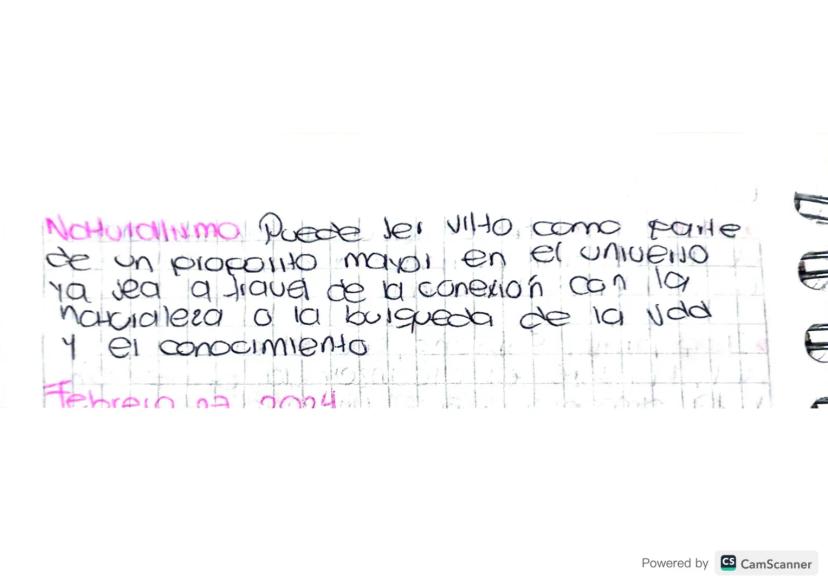 Naturalismo Puede ser visto como parte
de un proposito mayor en el universo
ya sea a travez de la conexión con la
naturaleza o la busqueda de la vdd
y el conocimiento
Febrero 27 2024
Powered by CS CamScanner